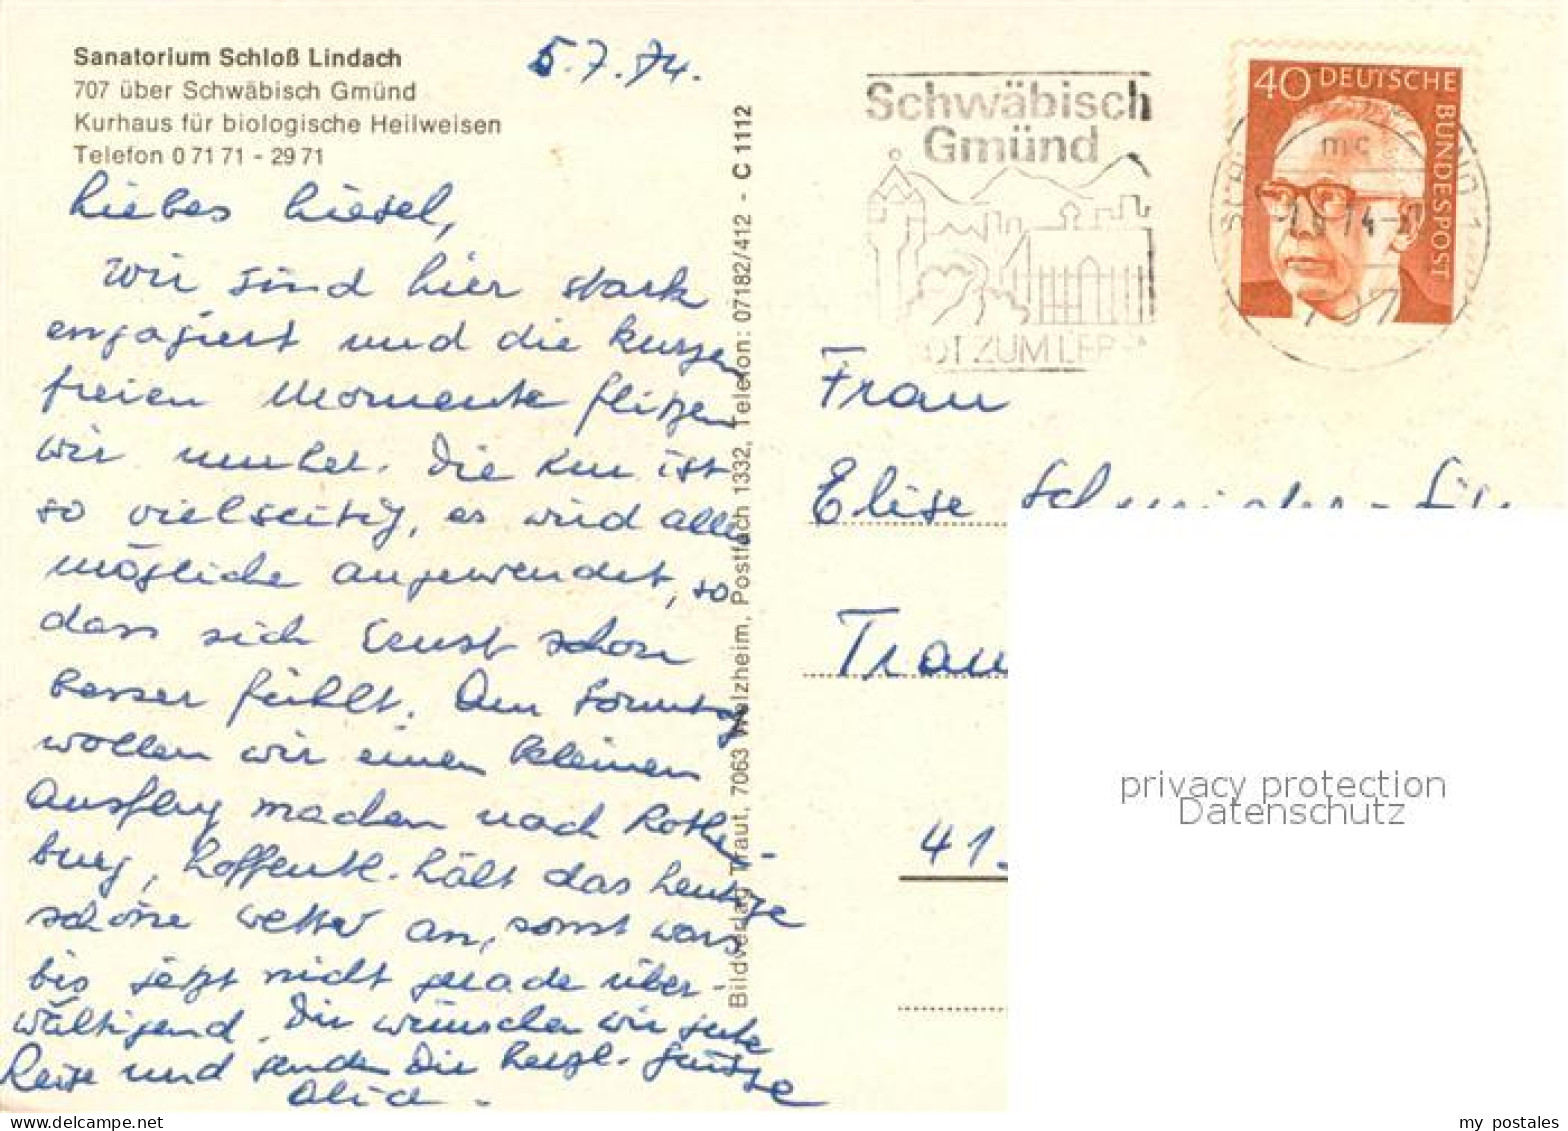 Sanatorium Schloß Lindach
707 über Schwäbisch Gmünd
Kurhaus für biologische Heilweisen
Telefon 0 71 71 - 29 71
5.7.74.
Liebes Liesel,
Wir sind hier stark
engagiert und die kurzen
freien Momente flitzen
wir umher. Die Kur ist
so vielseitig, es wird alles
mögliche angewendet, so
dass sich Ernst schon
besser fühlt. Am Sonntag
wollen wir einen kleinen
Ausflug machen nach Rothen-
burg, hoffentl. hält das heutige
schöne Wetter an, sonst wars
bis jetzt nicht gerade über-
wältigend. Dir wünschen wir gute
Reise und senden Dir herzl. Grüsse
Bildverlag Traut, 7063 Welzheim, Postfach 1332, Telefon: 07182/412 - C 1112
Schwäbisch
Gmünd
ZUM LEB
40 DEUTSCHE
BUNDESPOST
mc
74
707
Frau
Elise
Trau
41
privacy protection
Datenschutz
my postales